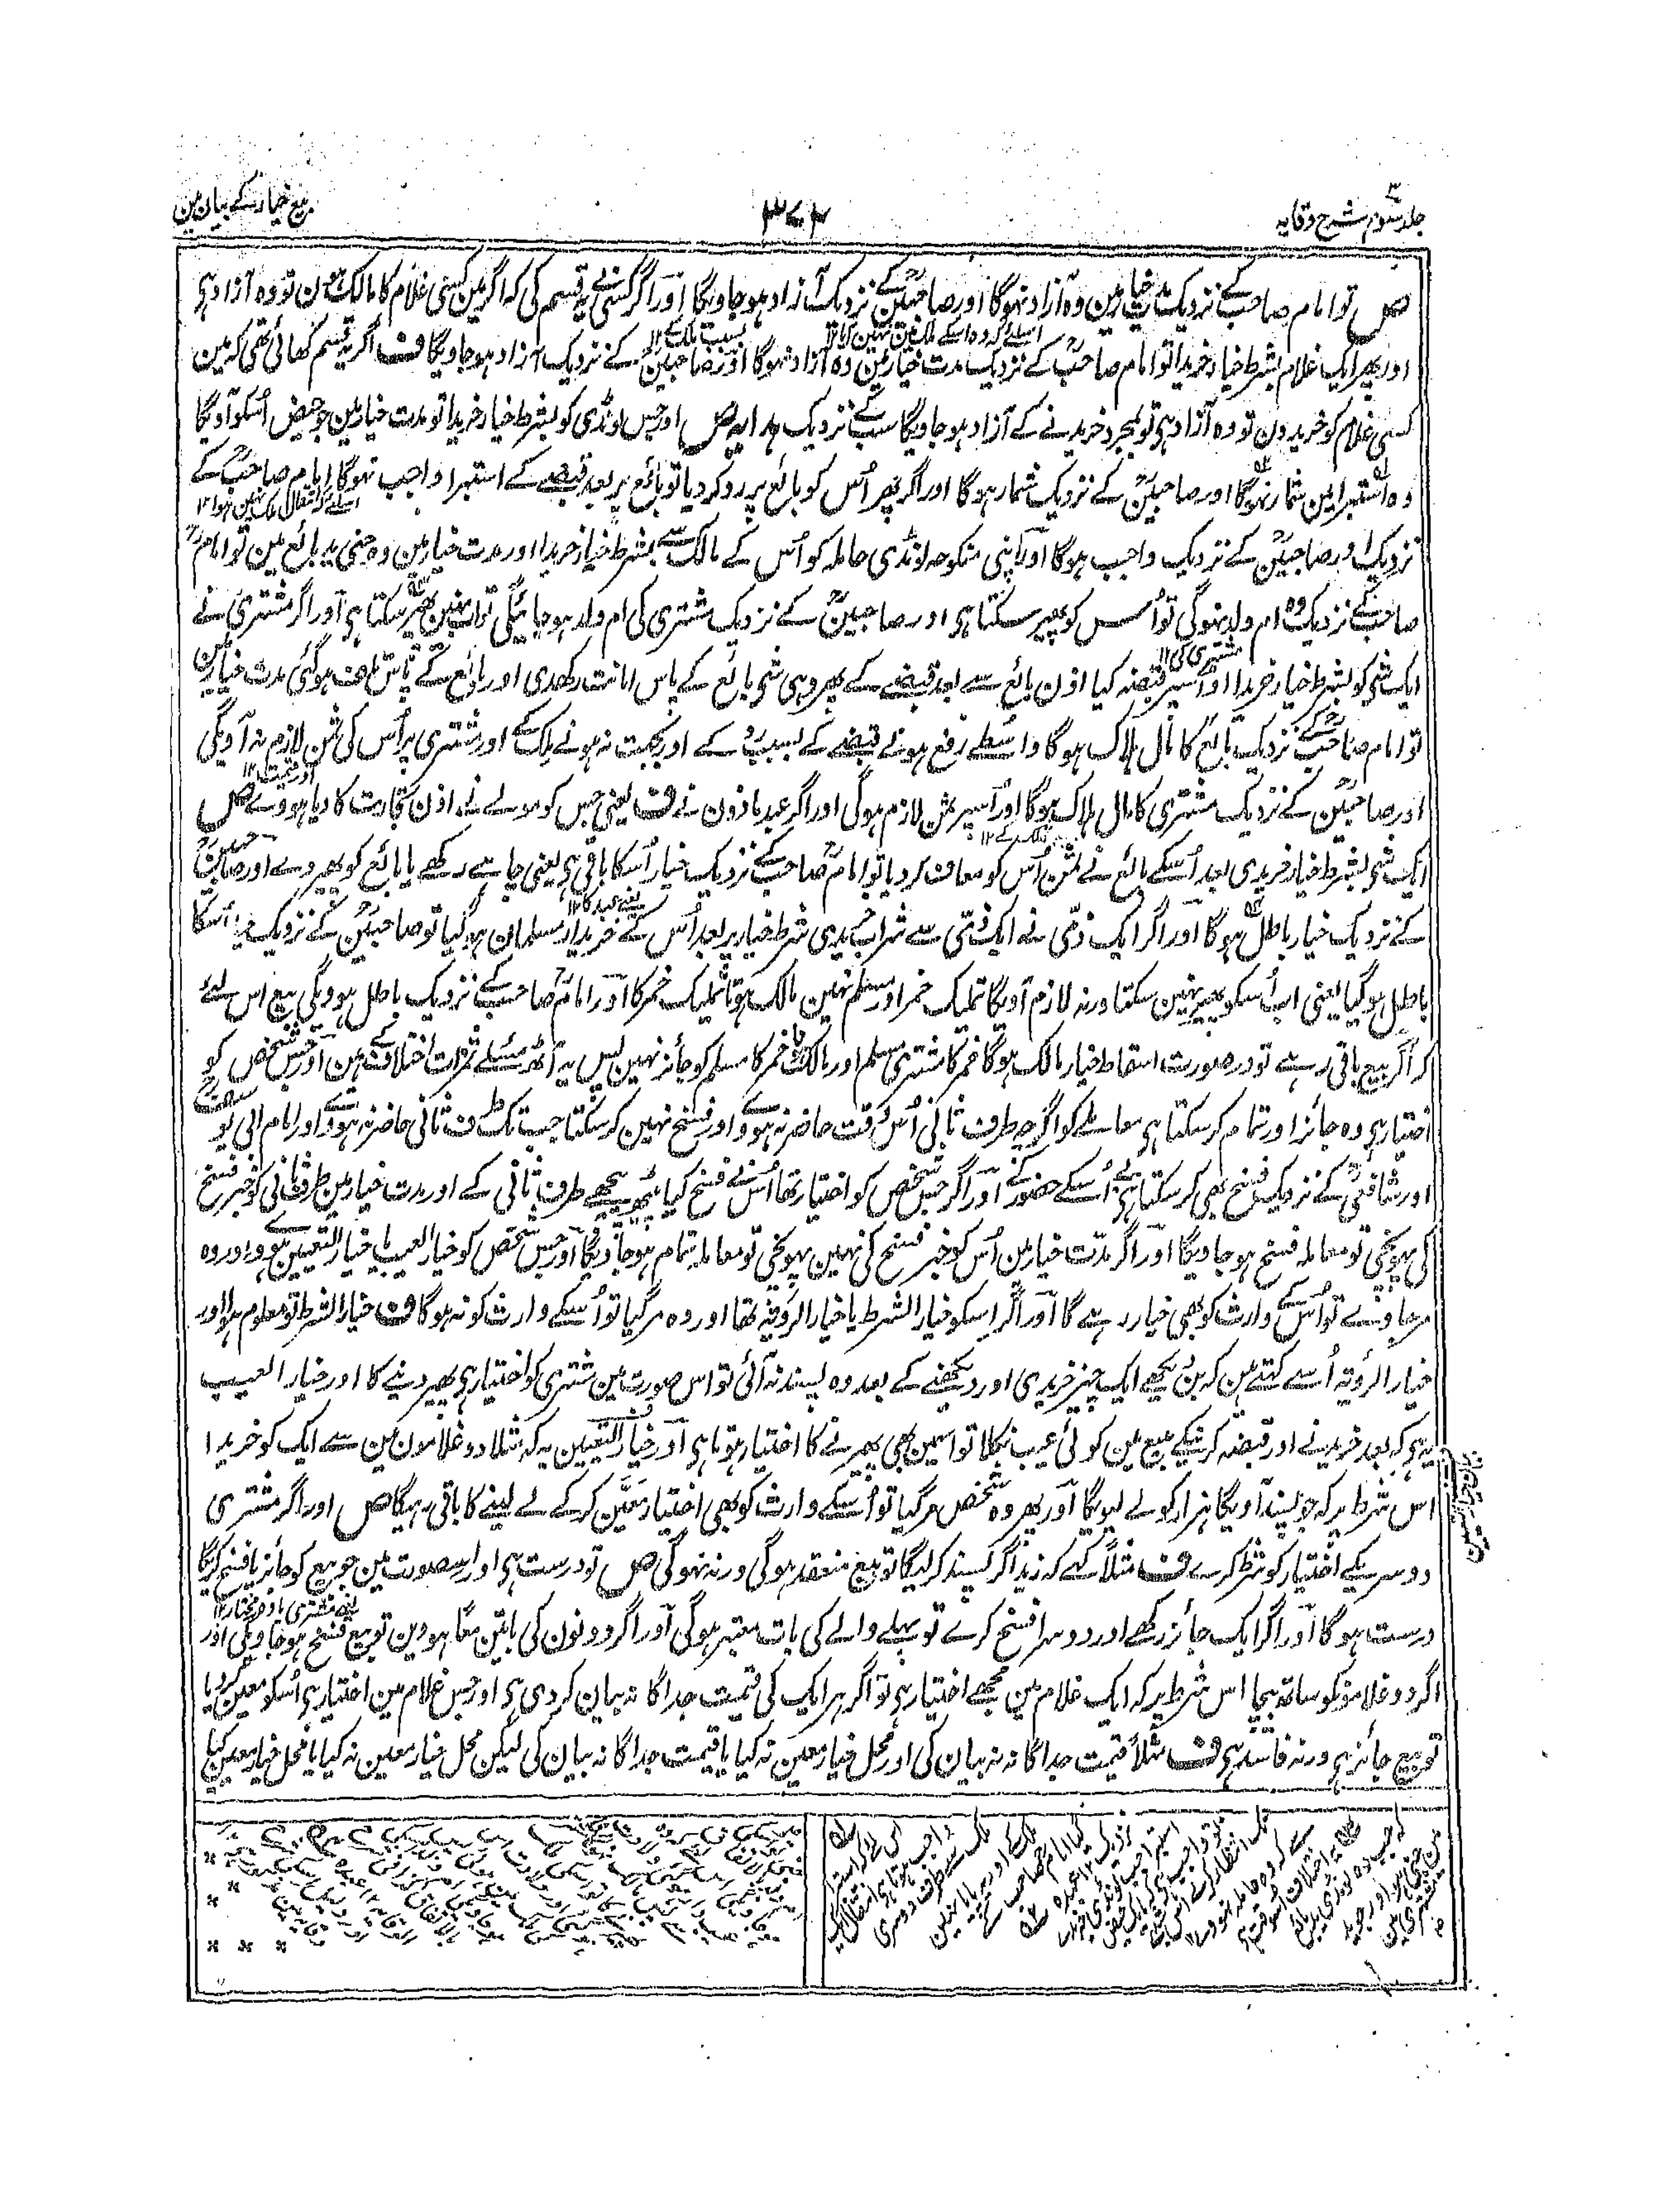 جلد سوم شرح وقایہ
۳۷۲
بیع خیار کے بیان مین
ص تو امام صاحب کے نزدیک مدت خیار مین وہ آزاد نہوگا اور صاحبینؒ کے نزدیک آزاد ہوجاویگا اور اگر کسی نے یہ قسم کی کہ اگر مین کسی غلام کا مالک ہون تو وہ آزاد ہی
اور پھر ایک غلام بشرط خیار خریدا تو امام صاحبؒ کے نزدیک مدت خیار مین وہ آزاد نہوگا اور صاحبینؒ کے نزدیک آزاد ہوجاویگا ف اگر یہ قسم کھائی تھی کہ مین
کسی غلام کو خریدون تو وہ آزاد ہی تو بمجرد خریدنے کے آزاد ہوجاویگا سب کے نزدیک ہدایہ ص اور جس لونڈی کو بشرط خیار خریدا تو مدت خیار مین جو حیض اُسکو آویگا
وہ استبرا مین شمار نہوگا اور صاحبینؒ کے نزدیک شمار ہوگا اور اگر پھر اُس کو بائع پر رد کر دیا تو بائع پر بعد قبضے کے استبرا واجب نہوگا امام صاحبؒ کے
نزدیک اور صاحبینؒ کے نزدیک واجب ہوگا اور اپنی منکوحہ لونڈی حاملہ کو اُس کے مالک سے بشرط خیار خریدا اور مدت خیار مین وہ جنی ید بائع مین تو امامؒ
صاحب کے نزدیک وہ ام ولد نہوگی تو اُس کو پھیر سکتا ہی اور صاحبینؒ کے نزدیک مشتری کی ام ولد ہوجائیگی تو اب نہین پھیر سکتا ہی اور اگر مشتری نے
ایک شی کو بشرط خیار خریدا اور اسپر قبضہ کیا اذن بائع سے بعد قبضے کے پھر وہی شی بائع کے پاس امانت رکھدی اور بائع کے پاس تلف ہوگئی مدت خیار مین
تو امام صاحبؒ کے نزدیک بائع کا مال ہلاک ہوگا واسطے رفع ہونے قبضے کے بسبب رد کے اور بجہت نہ ہونے ملک کے اور مشتری پر اُس کی ثمن لازم نہ آویگی
اور صاحبینؒ کے نزدیک مشتری کا مال ہلاک ہوگا اور اُسپر ثمن لازم ہوگی اور اگر عبد ماذون نے ف یعنی جس کو مولے نے اذن تجارت کا دیا ہووے ص
ایک شی بشرط خیار خریدی بعد اُسکے بائع نے ثمن اُس کو معاف کر دیا تو امامؒ صاحب کے نزدیک خیار اُسکا باقی ہی یعنی چاہے رکھے یا بائع کو پھیر دے اور صاحبینؒ
کے نزدیک خیار باطل ہوگا اور اگر ایک ذمی نے ایک ذمی سے شراب خریدی شرط خیار پر بعد اُس کے خریدار مسلمان ہوگیا تو صاحبینؒ کے نزدیک خیار اُسکا
باطل ہوگیا یعنی اب اُسکو پھیر نہین سکتا ورنہ لازم آویگا تملیک خمر اور مسلم نہین مالک ہوتا تملیک خمر کا اور امامؒ صاحب کے نزدیک باطل ہوویگی بیع اس لئے
کہ اگر بیع باقی رہے تو درصورت اسقاط خیار مالک ہوگا خمر کا مشتری مسلم اور مالک ہونا خمر کا مسلم کو جائز نہین پس یہ آٹھ مسئلے ثمرات اختلاف کے ہین اور جس شخص کو
اختیار ہی وہ جائز اور تمام کر سکتا ہی معاملے کو اگرچہ طرف ثانی اُس وقت حاضر نہ ہووے اور فسخ نہین کر سکتا جب تک طرف ثانی حاضر نہ ہووے اور امام ابی یوسفؒ
اور شافعیؒ کے نزدیک فسخ بھی کر سکتا ہی بے اُسکے حضور کے اور اگر جس شخص کو اختیار تھا اُس نے فسخ کیا پیٹھ پیچھے طرف ثانی کے اور مدت خیار مین طرف ثانی کو خبر فسخ
کی پہونچی تو معاملہ فسخ ہوجاویگا اور اگر مدت خیار مین اُس کو خبر فسخ کی نہین پہونچی تو معاملہ تمام ہوجاویگا اور جس شخص کو خیار العیب یا خیار التعیین ہووے اور وہ
مرجاوے تو اُس کے وارث کو بھی خیار رہے گا اور اگر اسکو خیار الشرط یا خیار الرویہ تھا اور وہ مرگیا تو اُسکے وارث کو نہ ہوگا ف خیار الشرط تو معلوم ہوا اور
خیار الرویہ اُسے کہتے ہین کہ بن دیکھے ایک چیز خریدی اور دیکھنے کے بعد وہ پسند نہ آئی تو اس صورت مین مشتری کو اختیار ہی پھیر دینے کا اور خیار العیب
یہ ہی کہ بعد خریدنے اور قبضہ کرنیکے مبیع مین کوئی عیب نکلا تو اسمین بھی پھیرنے کا اختیار ہوتا ہی اور خیار التعیین یہ کہ مثلا دو غلامون مین سے ایک کو خریدا
اس شرط پر کہ جو پسند آویگا ہزار کو لے لیویگا اور پھر وہ شخص مرگیا تو اُسکے وارث کو بھی اختیار معین کرکے لے لینے کا باقی رہیگا ص اور اگر مشتری
دوسریکے اختیار کو شرط کرے ف مثلاً کہے کہ زید اگر پسند کرلیگا تو بیع منعقد ہوگی ورنہ نہوگی ص تو درست ہی اور اس صورت مین جو بیع کو جائز یا فسخ کریگا
درست ہوگا اور اگر ایک جائز رکھے اور دوسرا فسخ کرے تو پہلے والے کی بات معتبر ہوگی اور اگر دونون کی باتین معًا ہووین تو بیع فسخ ہوجاویگی اور
اگر دو غلامونکو ساتھ بیچا اس شرط پر کہ ایک غلام مین مجھے اختیار ہی تو اگر ہر ایک کی قیمت جداگانہ بیان کر دی ہی اور جس غلام مین اختیار ہی اُسکو معین کر دیا
تو بیع جائز ہی ورنہ فاسد ہی ف مثلاً قیمت جداگانہ نہ بیان کی اور محل خیار معین نہ کیا یا قیمت جداگانہ بیان کی لیکن محل خیار معین نہ کیا یا محل خیار معین کیا